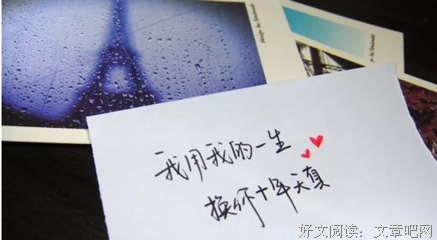 我用我的一生
换你十年天真
好文阅读：文章吧网